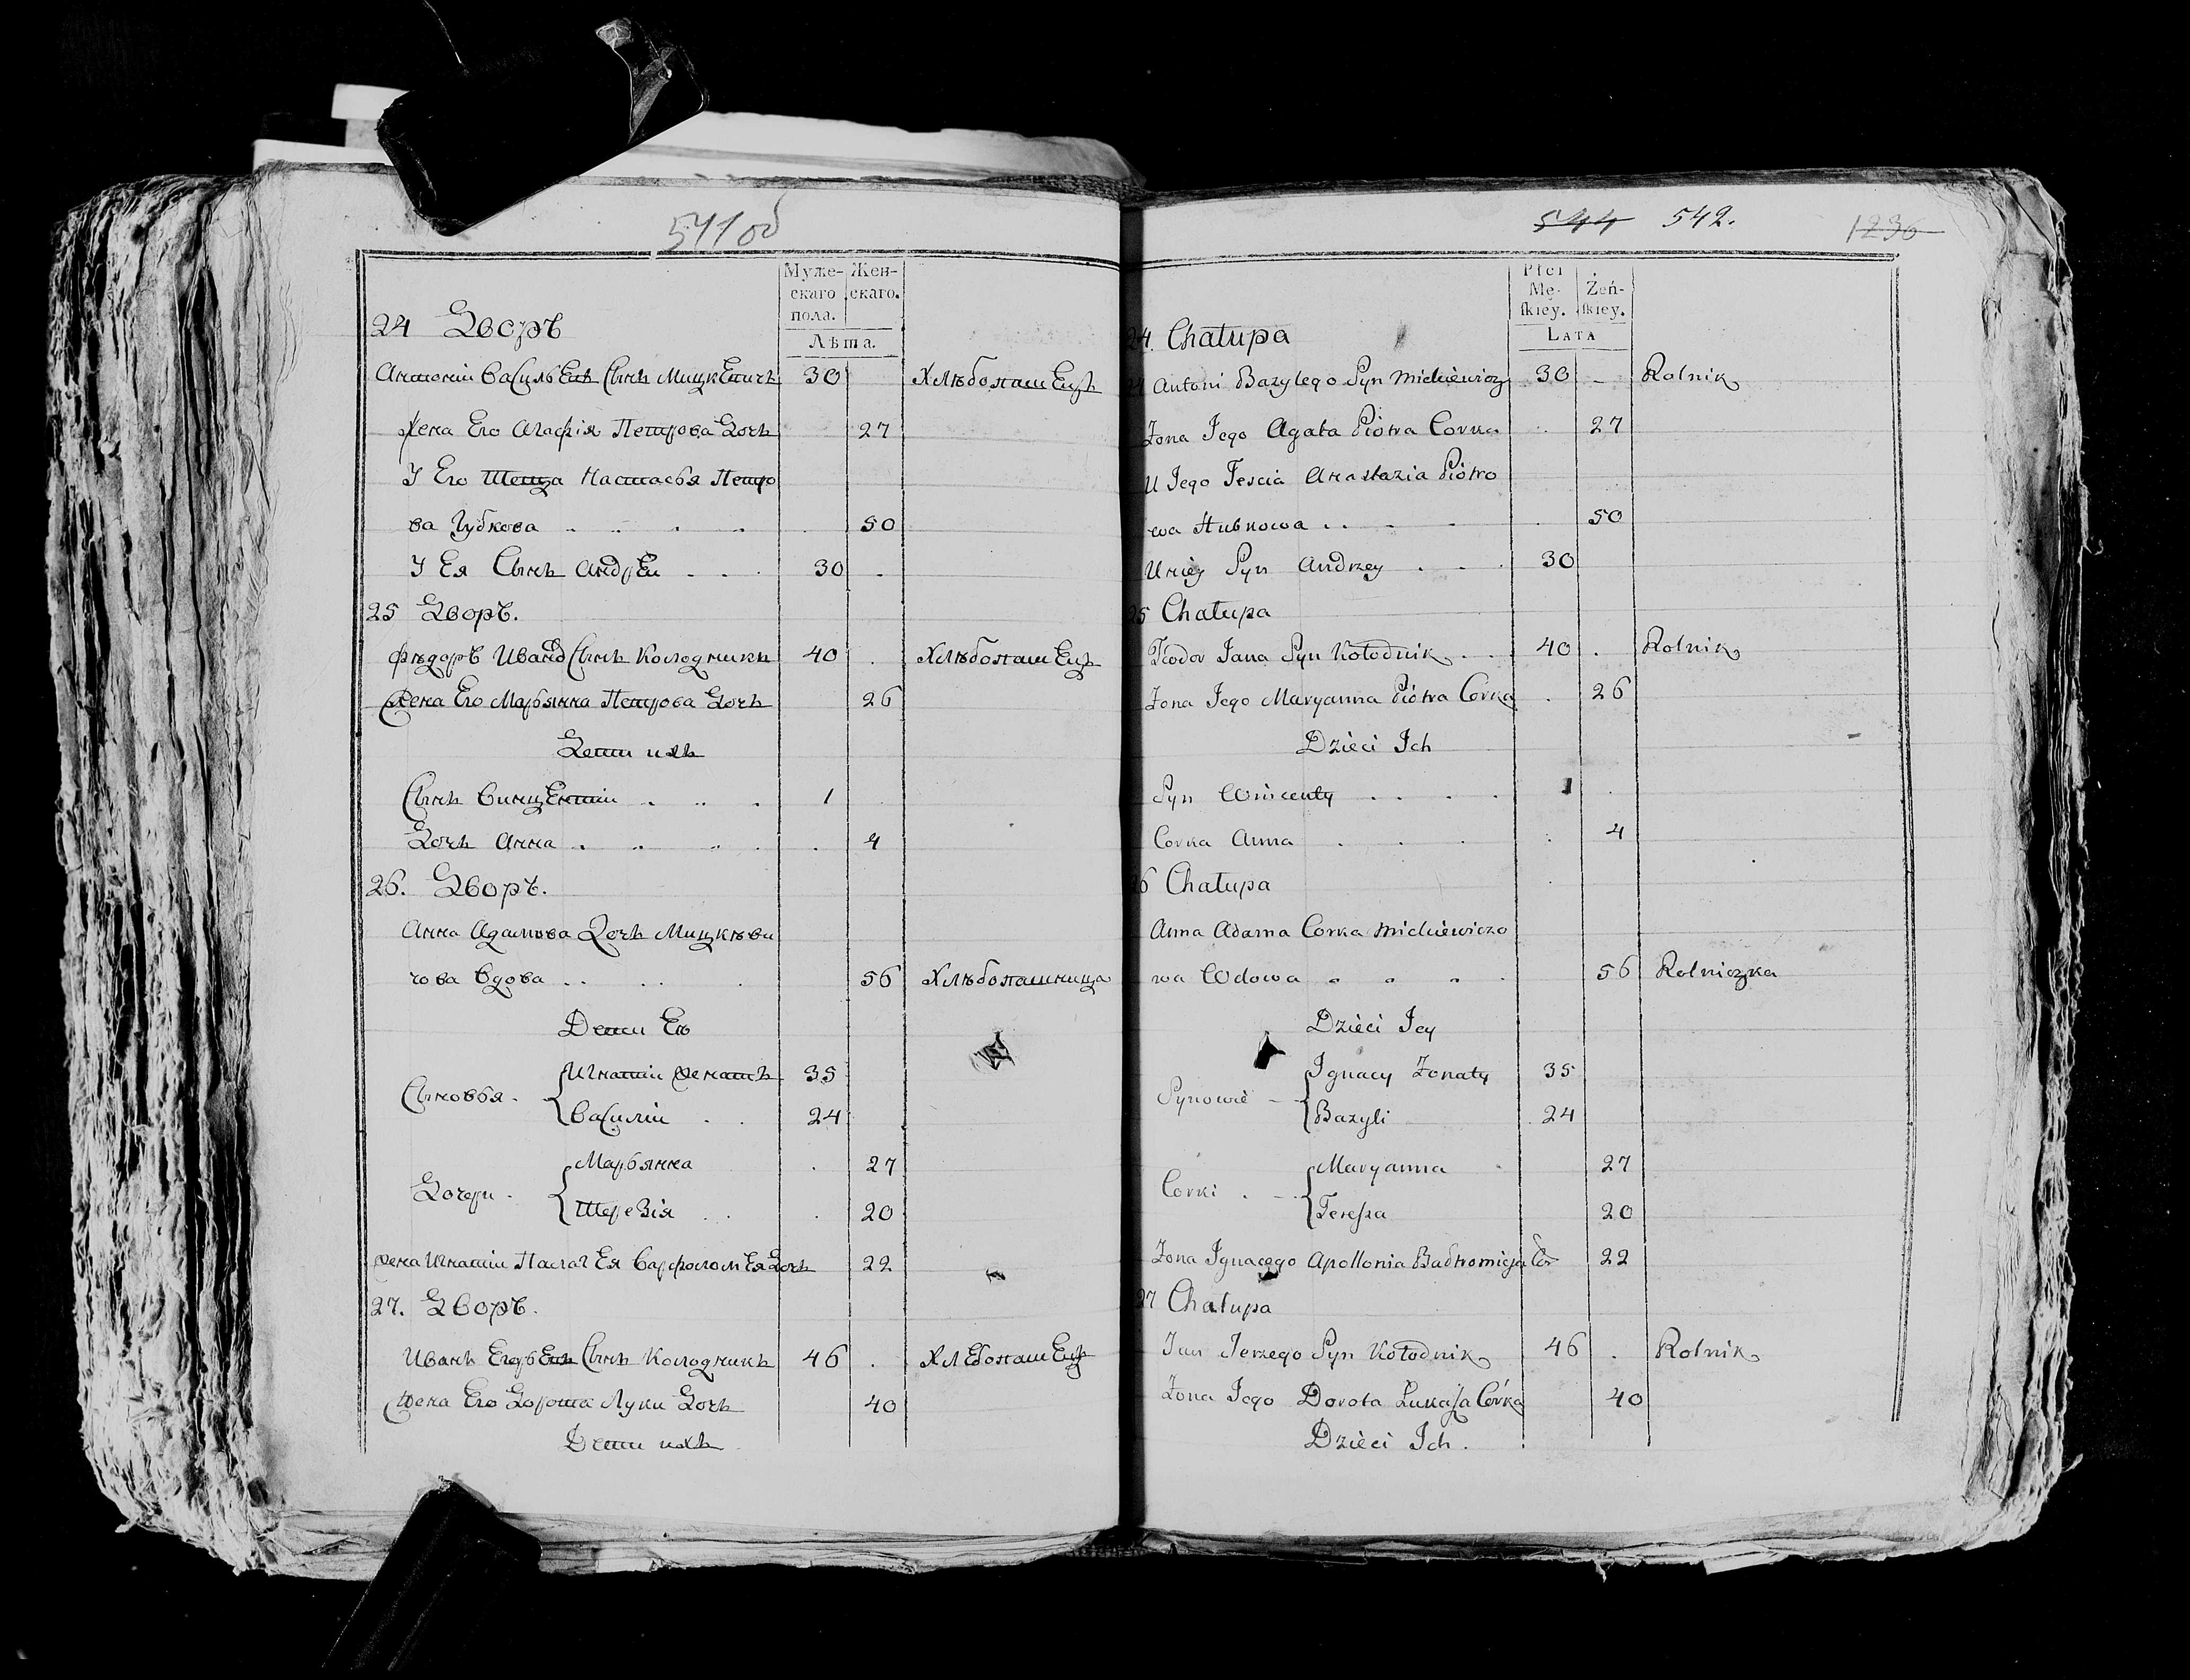 541 об
Муже-
скаго
пола.
Жен-
скаго.
Лѣта.
24 Дворъ
Антоній Васильевъ Сынъ Мицкевичь 30 Хлѣбопашецъ
Жена Его Агафія Петрова Дочь 27
У Его Теща Настасья Петро
ва Губкова . . . . 50
У Ея Сынъ Андрей . . . 30
25 Дворъ.
Фѣдоръ Иванов Сынъ Колодникъ 40 Хлѣбопашецъ
Жена Его Марьянна Петрова Дочь 26
Дети ихъ
Сынъ Винцентій . . . 1
Дочь Анна . . . . 4
26. Дворъ.
Анна Адамова Дочь Мицкѣви
чова Вдова . . . . 56 Хлѣбопашница
Дети Ею
Сыновья - Игнатій Женатъ 35
Василіи . . 24
Дочери - Марьянна 27
Терезія . . 20
Жена Игнатіи Палагея Варфоломея Дочь 22
27. Дворъ.
Иванъ Егорьевъ Сынъ Колодникъ 46 Хлебопашецъ
Жена Его Дорота Луки Дочь 40
Дети ихъ
544 542. 1236
Płci
Mę-
skiey.
Żeń-
skiey.
LATA
24. Chałupa
24 Antoni Bazylego Syn Mickiewicz 30 – Rolnik
Żona Jego Agata Piotra Corka 27
U Jego Teścia Anastazia Piotro
wa Hubkowa . . . . 50
U niey Syn Andrzey . . . 30
25 Chałupa
Teodor Jana Syn Kołodnik . . . 40 . Rolnik
Żona Jego Maryanna Piotra Corka . 26
Dzieci Ich
Syn Wincenty . . . . 1
Corka Anna . . . . 4
26 Chałupa
Anna Adama Corka Mickiewiczo
wa Wdowa . . . . 56 Rolniczka
Dzieci Jey
Synowie - Ignacy Żonaty 35
Bazyli 24
Corki . - Maryanna 27
Teressa 20
Żona Ignacego Apollonia Bałtromieja Cor 22
27 Chałupa
Jan Jerzego Syn Kołodnik 46 . Rolnik
Żona Jego Dorota Łukasza Córka 40
Dzieci Ich.